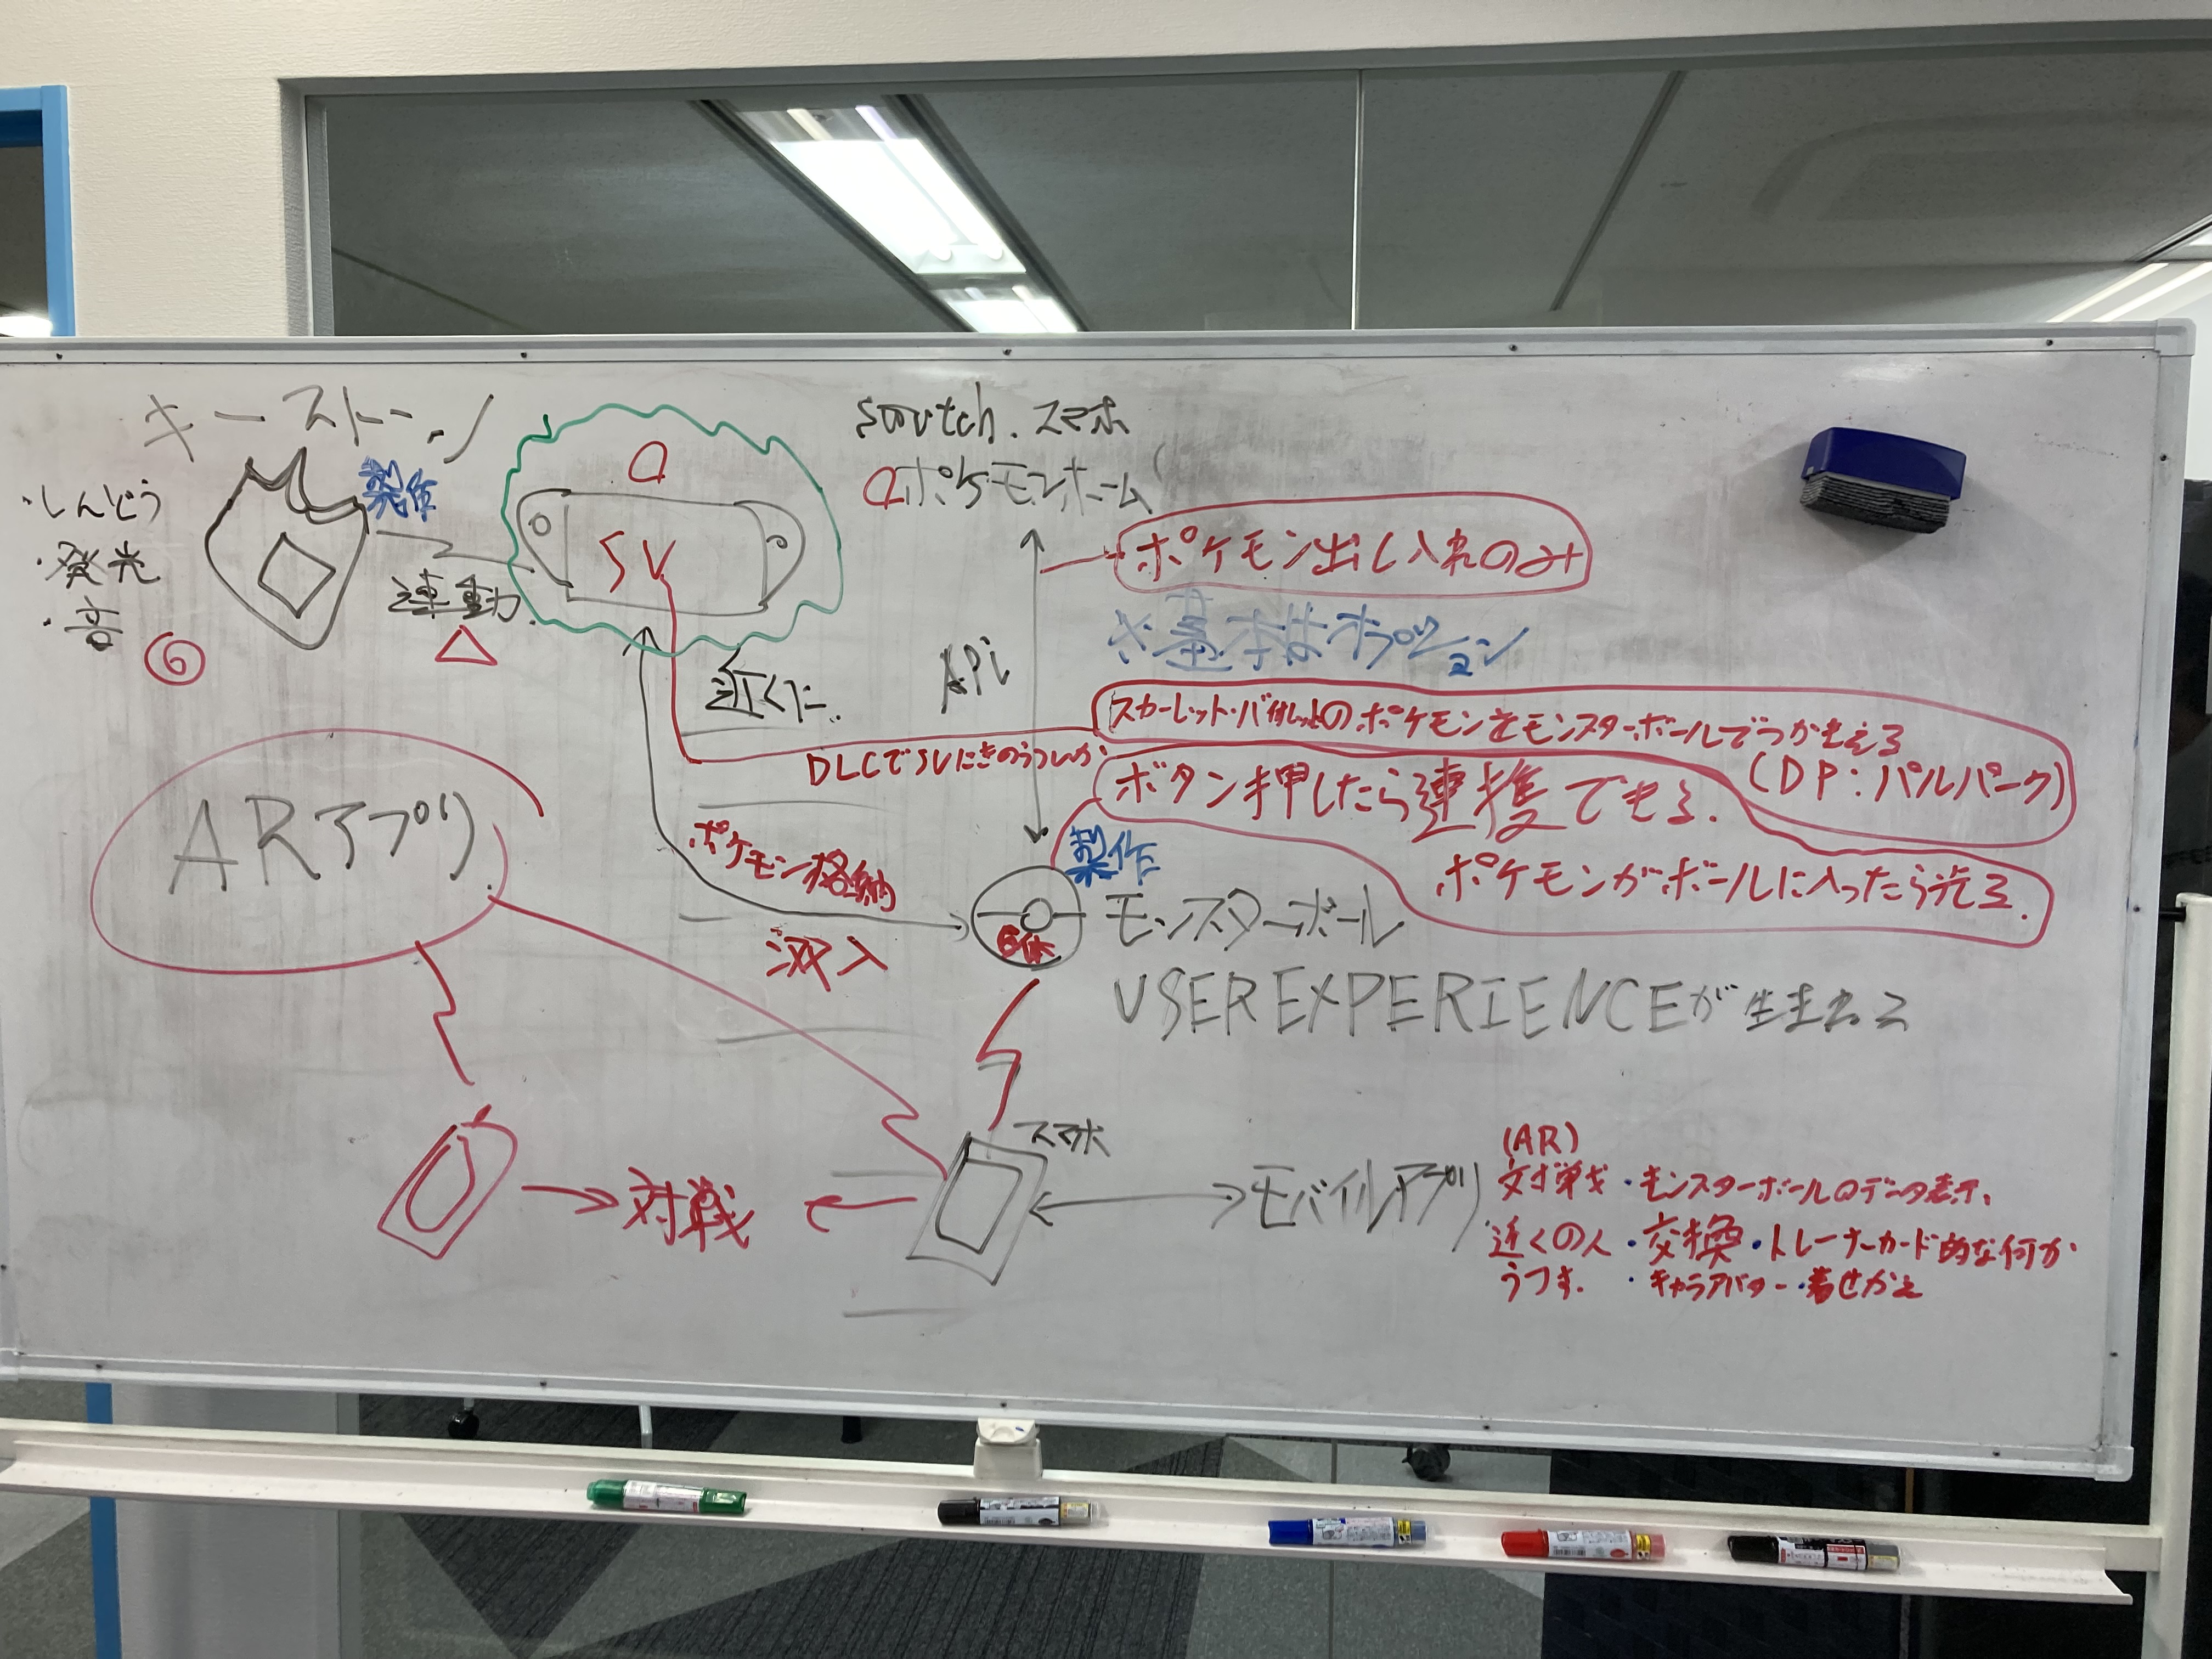 キーストーン
製作
・しんどう
・発光
・音
⑥
連動
△
a
SV
switch.スマホ
aポケモンホーム
ポケモン出し入れのみ
※基本はオプション
API
近くに
DLCでSVに
スカーレット・バイオレットのポケモンをモンスターボールでつかまえる
(DP:パルパーク)
ボタン押したら連獲できる.
ポケモンがボールに入ったら光る.
製作
ARアプリ
ポケモン格納
6体
モンスターボール
USER EXPERIENCEが生まれる
スマホ
対戦
モバイルアプリ
(AR)
対戦・モンスターボールのデータ表示、
近くの人・交換・トレーナーカード的な何か
うつす.・キャラアバター・着せかえ